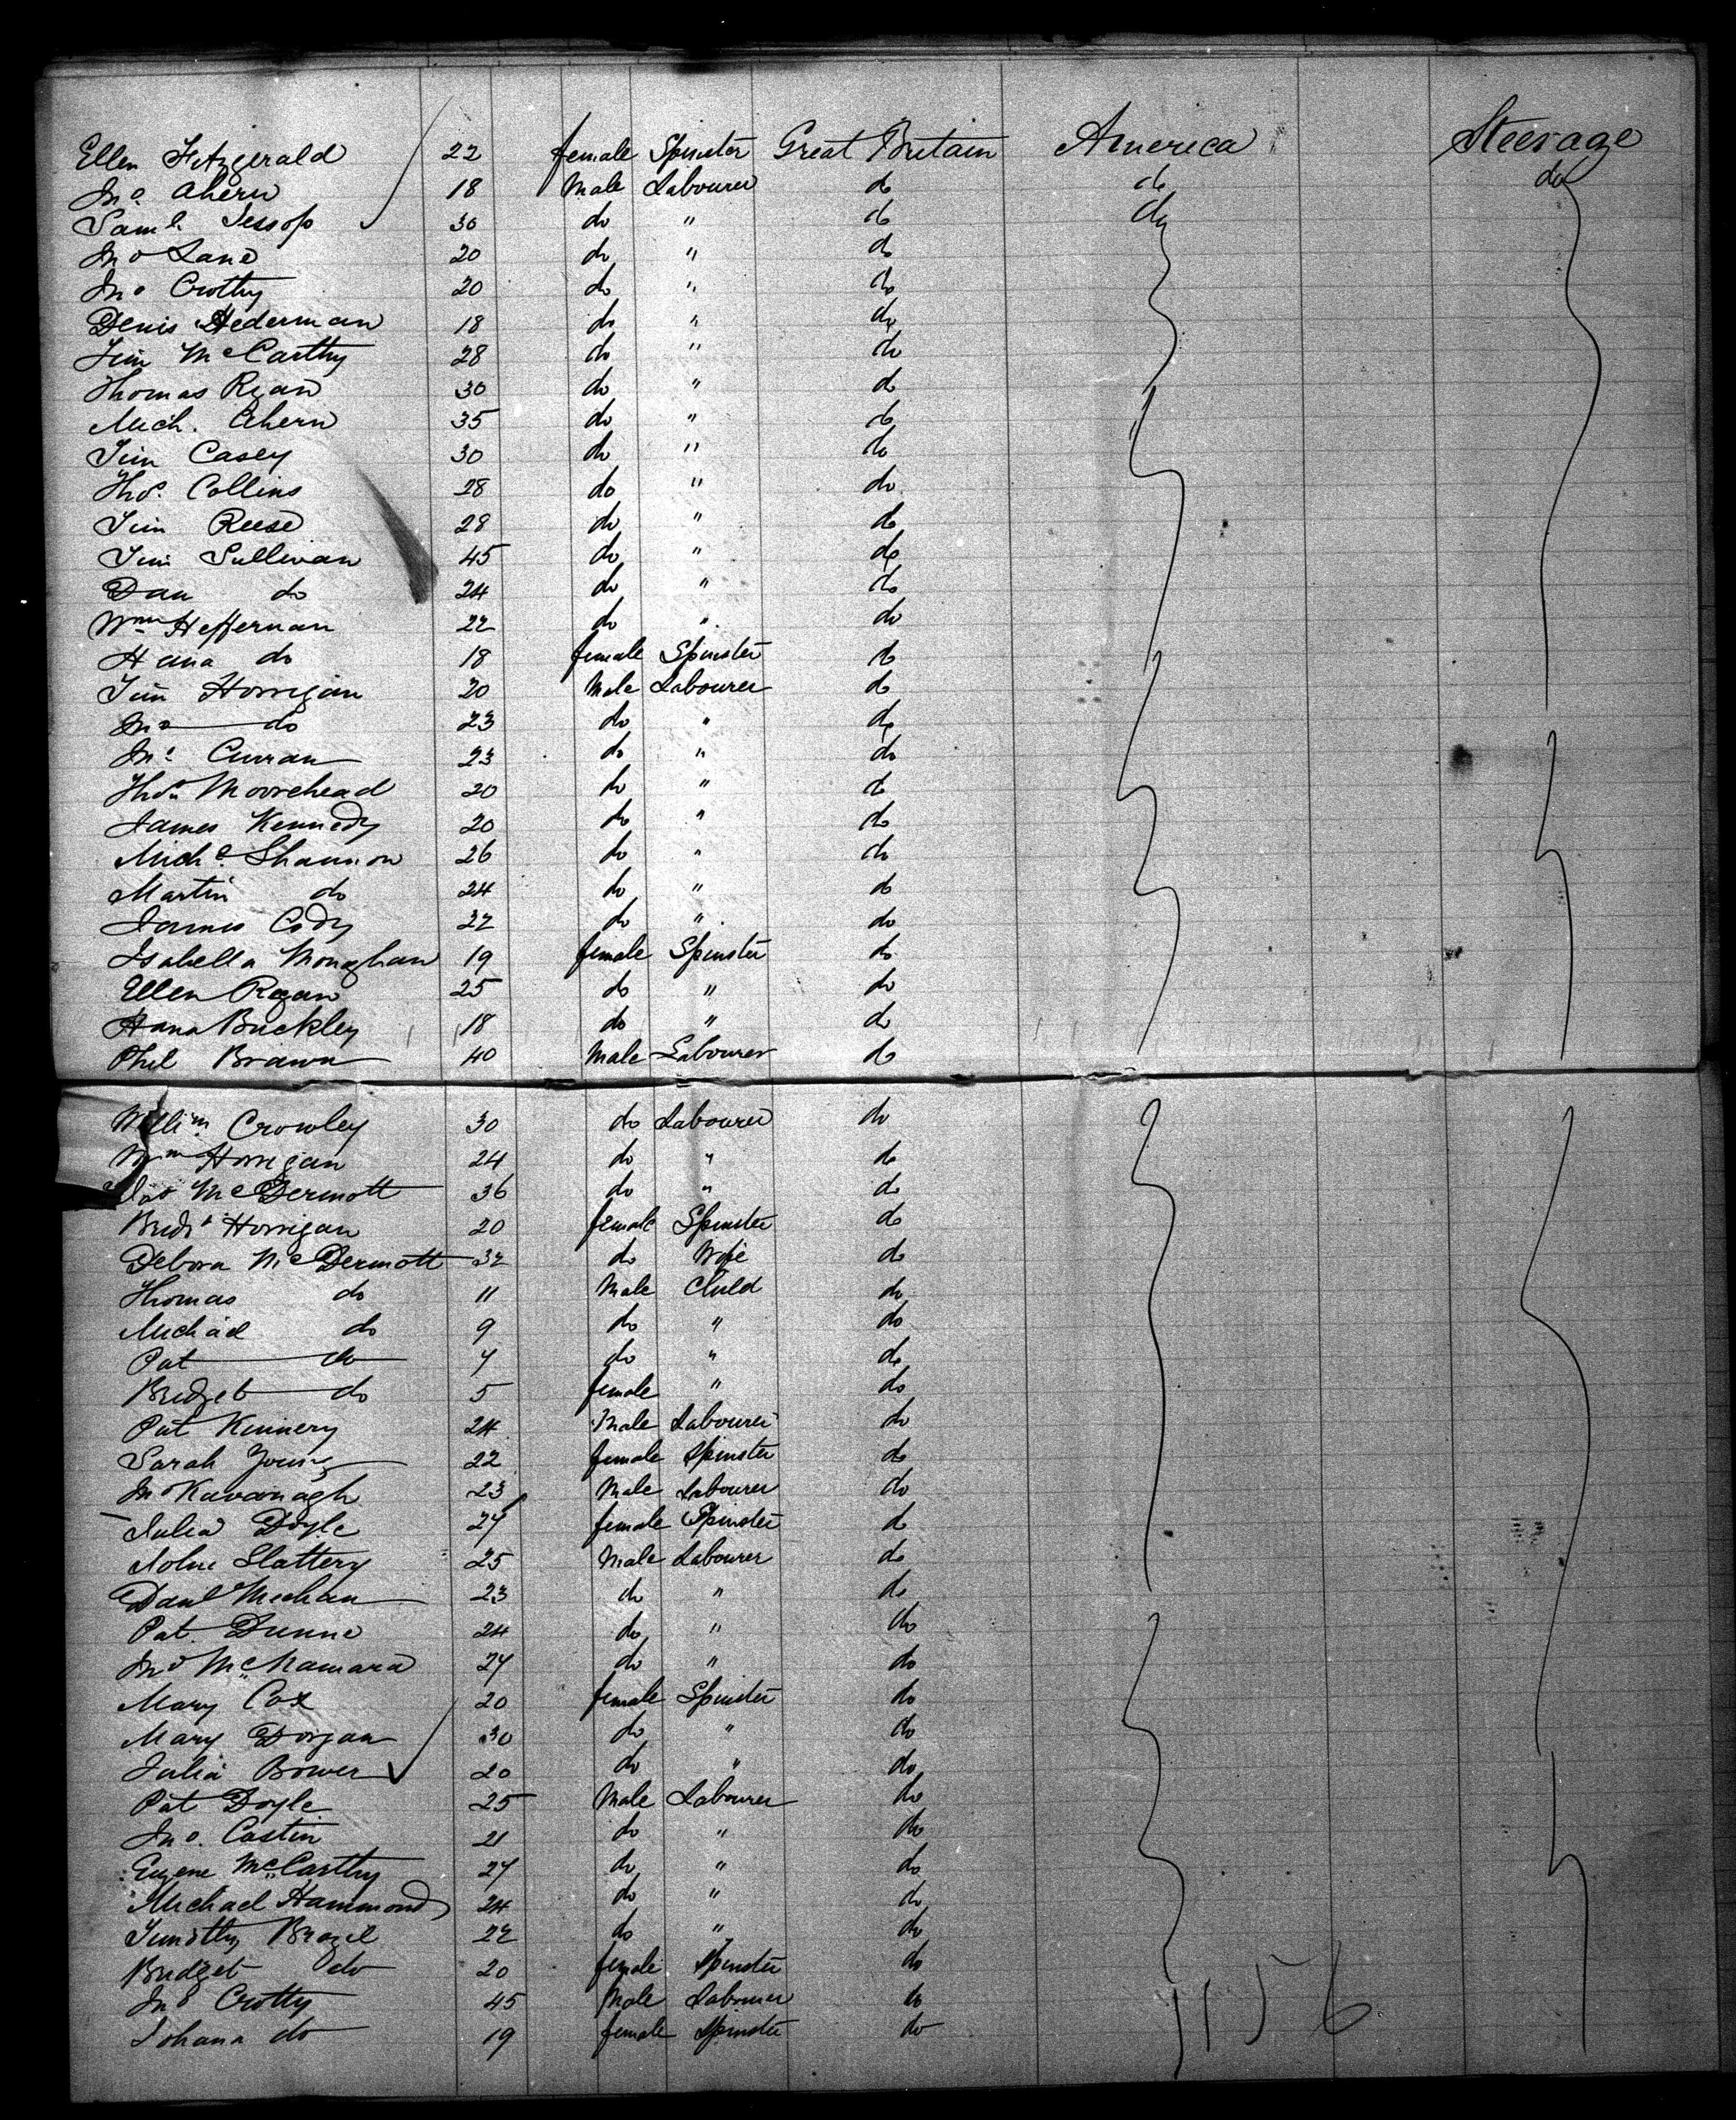 Ellen Fitzgerald 22 female Spinster Great Britain America Steerage
Jno Ahern 18 Male Labourer do do do
Saml. Jessop 30 do " do do
Jno Lane 20 do " do
Jno Crotty 20 do " do
Denis Hederman 18 do " do
Jim McCarthy 28 do " do
Thomas Ryan 30 do " do
Mich. Ahern 35 do " do
Jim Casey 30 do " do
Thos. Collins 28 do " do
Jim Reese 28 do " do
Jim Sullivan 45 do " do
Dan do 24 do " do
Wm Heffernan 22 do " do
Hana do 18 female Spinster do
Jim Horrigan 20 Male Labourer do
Jno do 23 do " do
Jno Curran 23 do " do
Thos. Moorehead 20 do " do
James Kennedy 20 do " do
Michl. Shannon 26 do " do
Martin do 24 do " do
James Cody 22 do " do
Isabella Monaghan 19 female Spinster do
Ellen Ryan 25 do " do
Hana Buckley 18 do " do
Phil Brawn 40 Male Labourer do
Willim Crowley 30 do Labourer do
Wm Horrigan 24 do " do
McDermott 36 do " do
Bridt Horrigan 20 female Spinster do
Debora McDermott 32 do Wife do
Thomas do 11 Male Child do
Michael do 9 do " do
Pat do 7 do " do
Bridget do 5 female " do
Pat Kinnery 24 Male Labourer do
Sarah Young 22 female Spinster do
Jno Kavanagh 23 Male Labourer do
Julia Doyle 27 female Spinster do
John Slattery 25 Male Labourer do
Danl Meehan 23 do " do
Pat. Dunne 24 do " do
Jno McNamara 27 do " do
Mary Cox 20 female Spinster do
Mary Dorgan 30 do " do
Julia Bower 20 do " do
Pat Doyle 25 Male Labourer do
Jno. Castin 21 do " do
Eugene McCarthy 27 do " do
Michael Hammond 24 do " do
Timothy Brazil 22 do " do
Bridget do 20 female Spinster do
Jno Crotty 45 Male Labourer do
Johana do 19 female Spinster do
1156